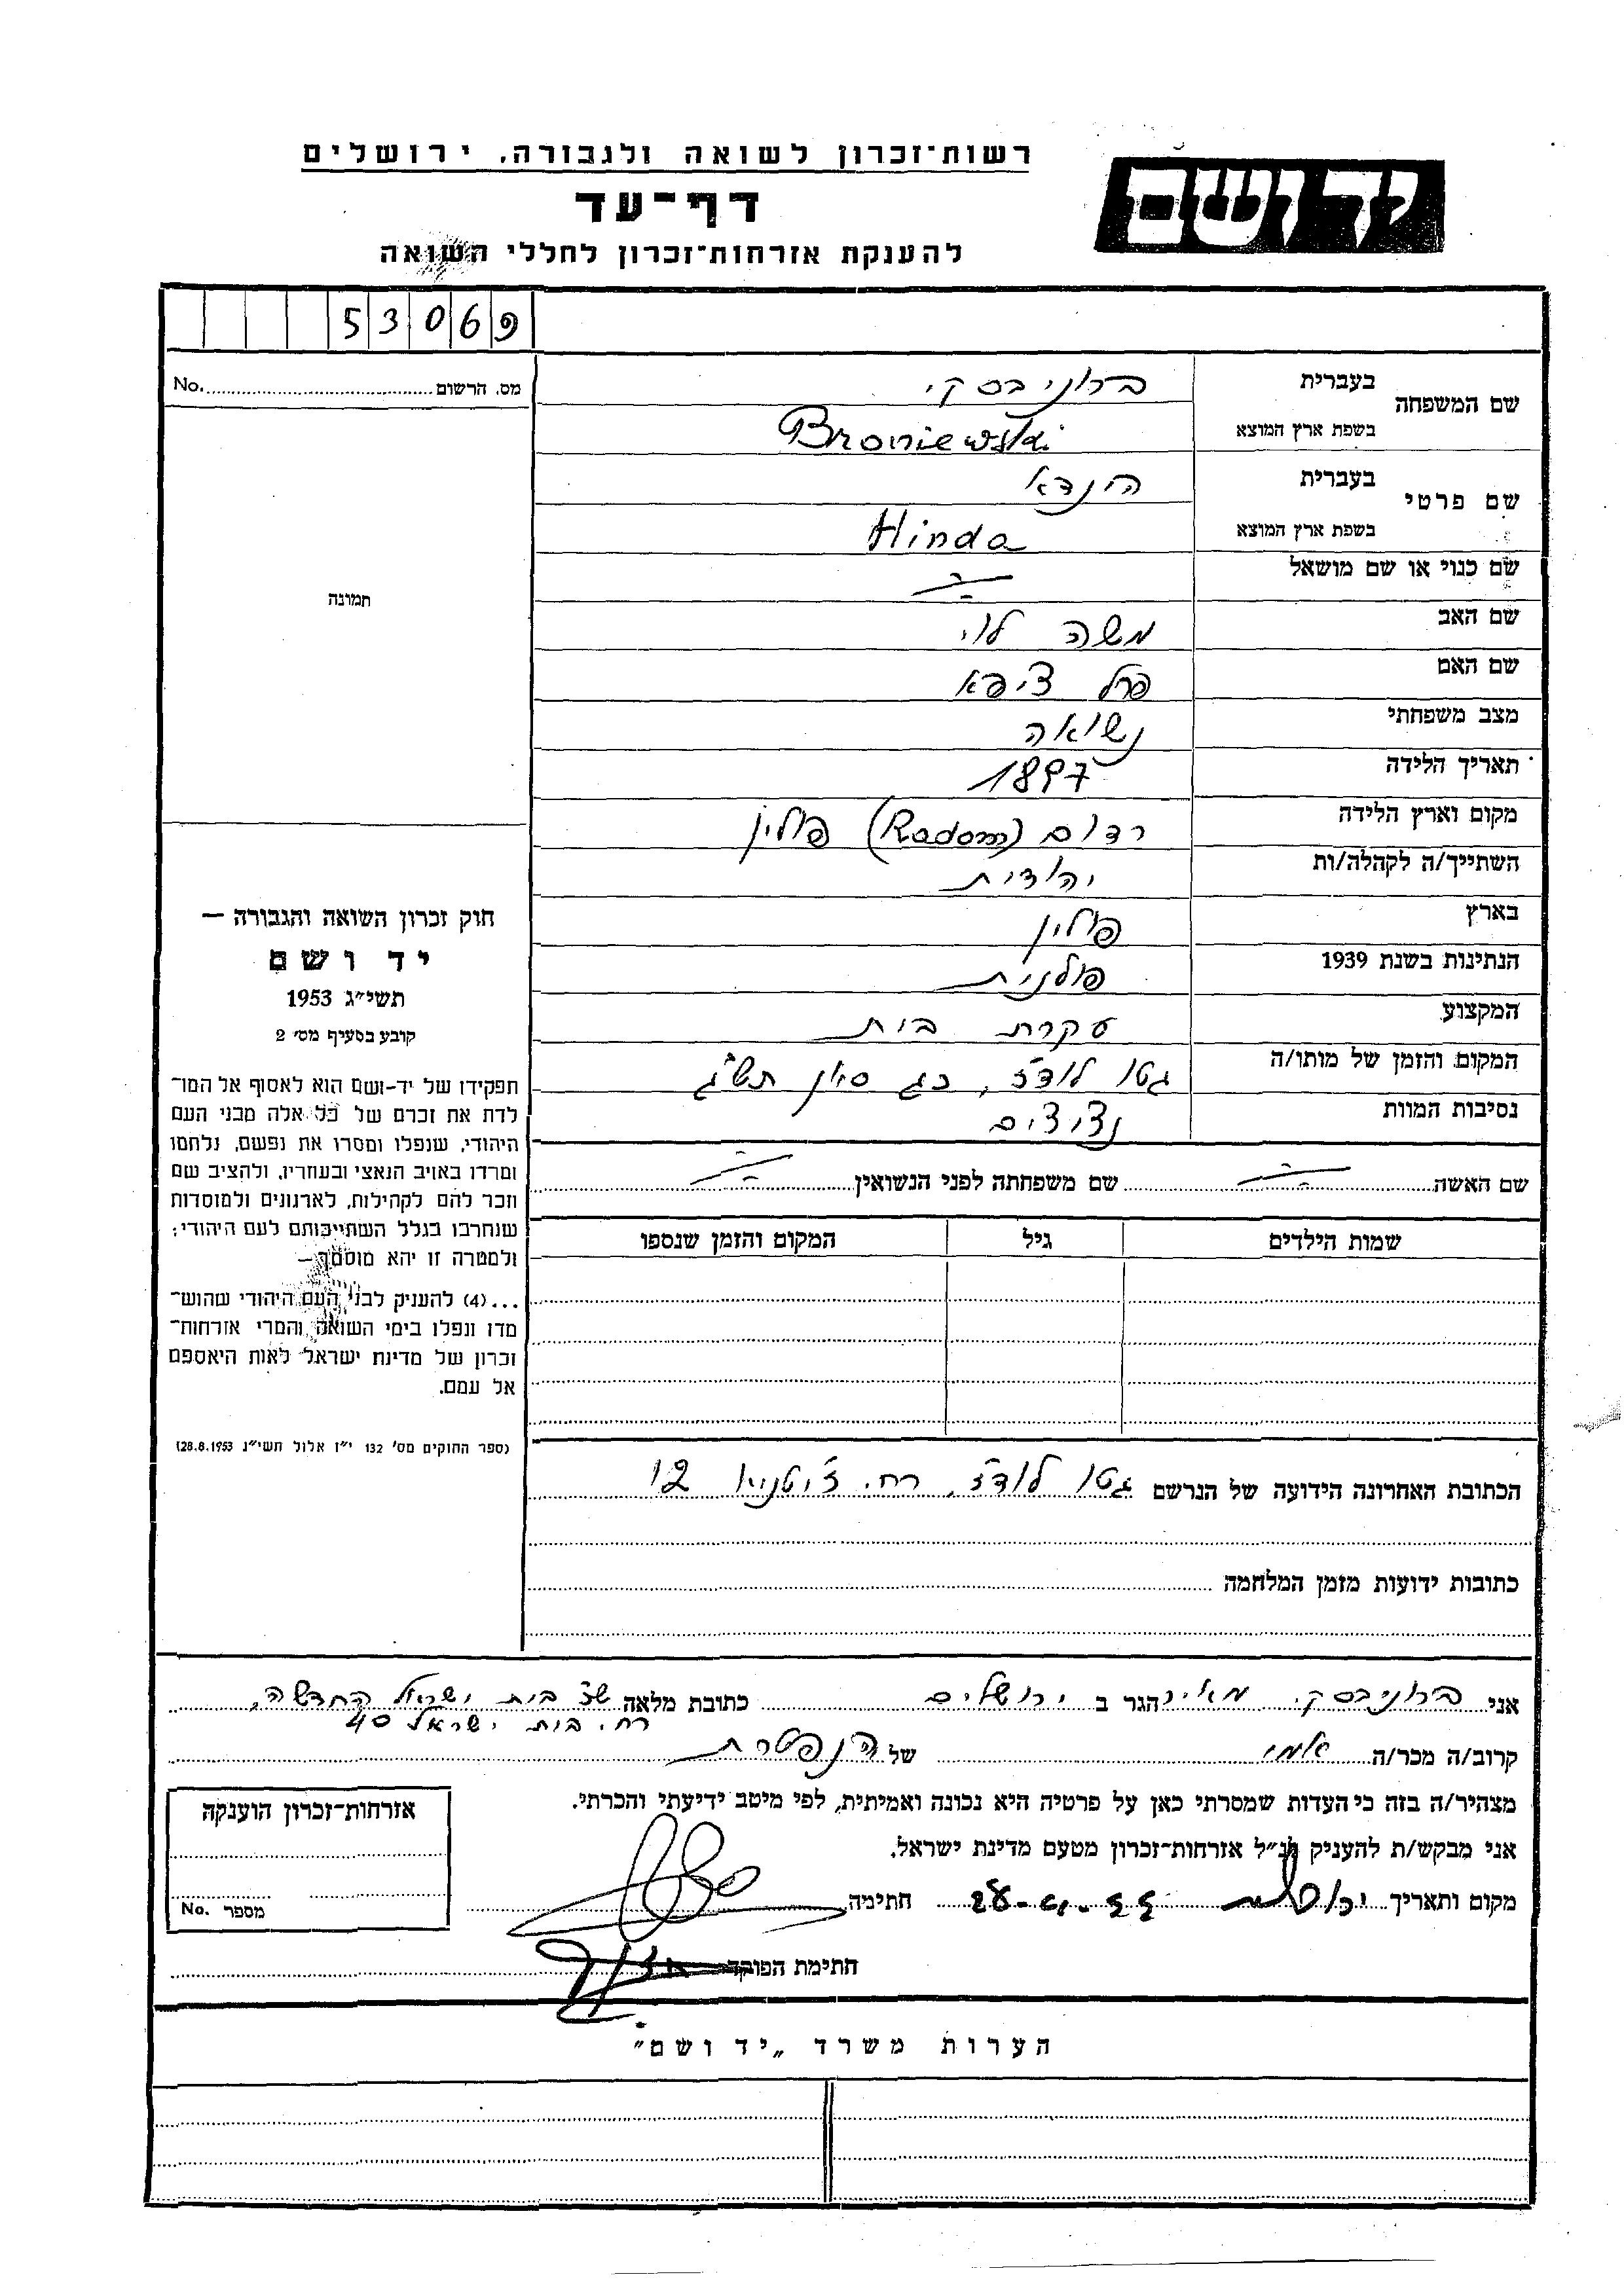 רשות־זכרון לשואה ולגבורה, ירושלים
יד ושם
דף־עד
להענקת אזרחות־זכרון לחללי השואה
53069
מס. הרשום No.
תמונה
שם המשפחה בעברית ברוניבסקי
בשפת ארץ המוצא Broniewski
שם פרטי בעברית הינדא
בשפת ארץ המוצא Hinda
שם כנוי או שם מושאל
שם האב משה לוי
שם האם פרל ציפא
מצב משפחתי נשואה
תאריך הלידה 1897
מקום וארץ הלידה רדום (Radom) פולין
השתייך/ה לקהלה/ות יהודית
בארץ פולין
הנתינות בשנת 1939 פולנית
המקצוע עקרת בית
המקום והזמן של מותו/ה גטו לודז, כג סיון תש"ג
נסיבות המוות
שם האשה שם משפחתה לפני הנשואין
שמות הילדים גיל המקום והזמן שנספו
הכתובת האחרונה הידועה של הנרשם גטו לודז, רח. 12
כתובות ידועות מזמן המלחמה
חוק זכרון השואה והגבורה —
יד ושם
תשי״ג 1953
קובע בסעיף מס׳ 2
תפקידו של יד-ושם הוא לאסוף אל המו־
לדת את זכרם של כל אלה מבני העם
היהודי, שנפלו ומסרו את נפשם, נלחמו
ומרדו באויב הנאצי ובעוזריו, ולהציב שם
וזכר להם לקהילות, לארגונים ולמוסדות
שנחרבו בגלל השתייכותם לעם היהודי;
ולמטרה זו יהא מוסמך —
...(4) להעניק לבני העם היהודי שהוש־
מדו ונפלו בימי השואה והמרי אזרחות־
זכרון של מדינת ישראל לאות היאספם
אל עמם.
(ספר החוקים מס׳ 132 י״ז אלול תשי״ג 28.8.1953)
אני ברוניבסקי מאיר הגר ב ירושלים כתובת מלאה שכ' בית ישראל החדשה,
רח. בית ישראל 40
קרוב/ה מכר/ה אמי של הנפטרת
מצהיר/ה בזה כי העדות שמסרתי כאן על פרטיה היא נכונה ואמיתית, לפי מיטב ידיעתי והכרתי.
אני מבקש/ת להעניק לנ״ל אזרחות־זכרון מטעם מדינת ישראל.
מקום ותאריך ירושלים חתימה
חתימת הפוקד
אזרחות־זכרון הוענקה
מספר No.
הערות משרד „יד ושם”